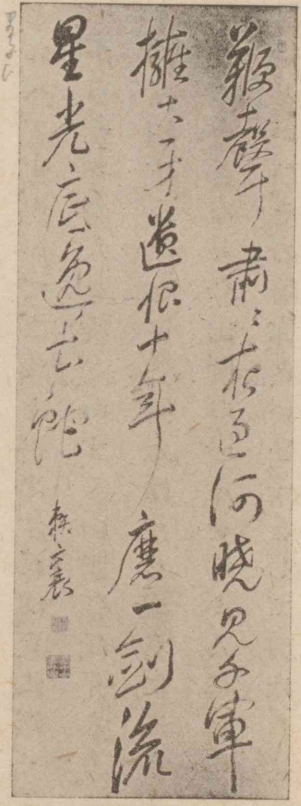 鞭聲肅々夜過河曉見千軍
擁大牙遺恨十年磨一劍流
星光底逸長蛇 賴襄